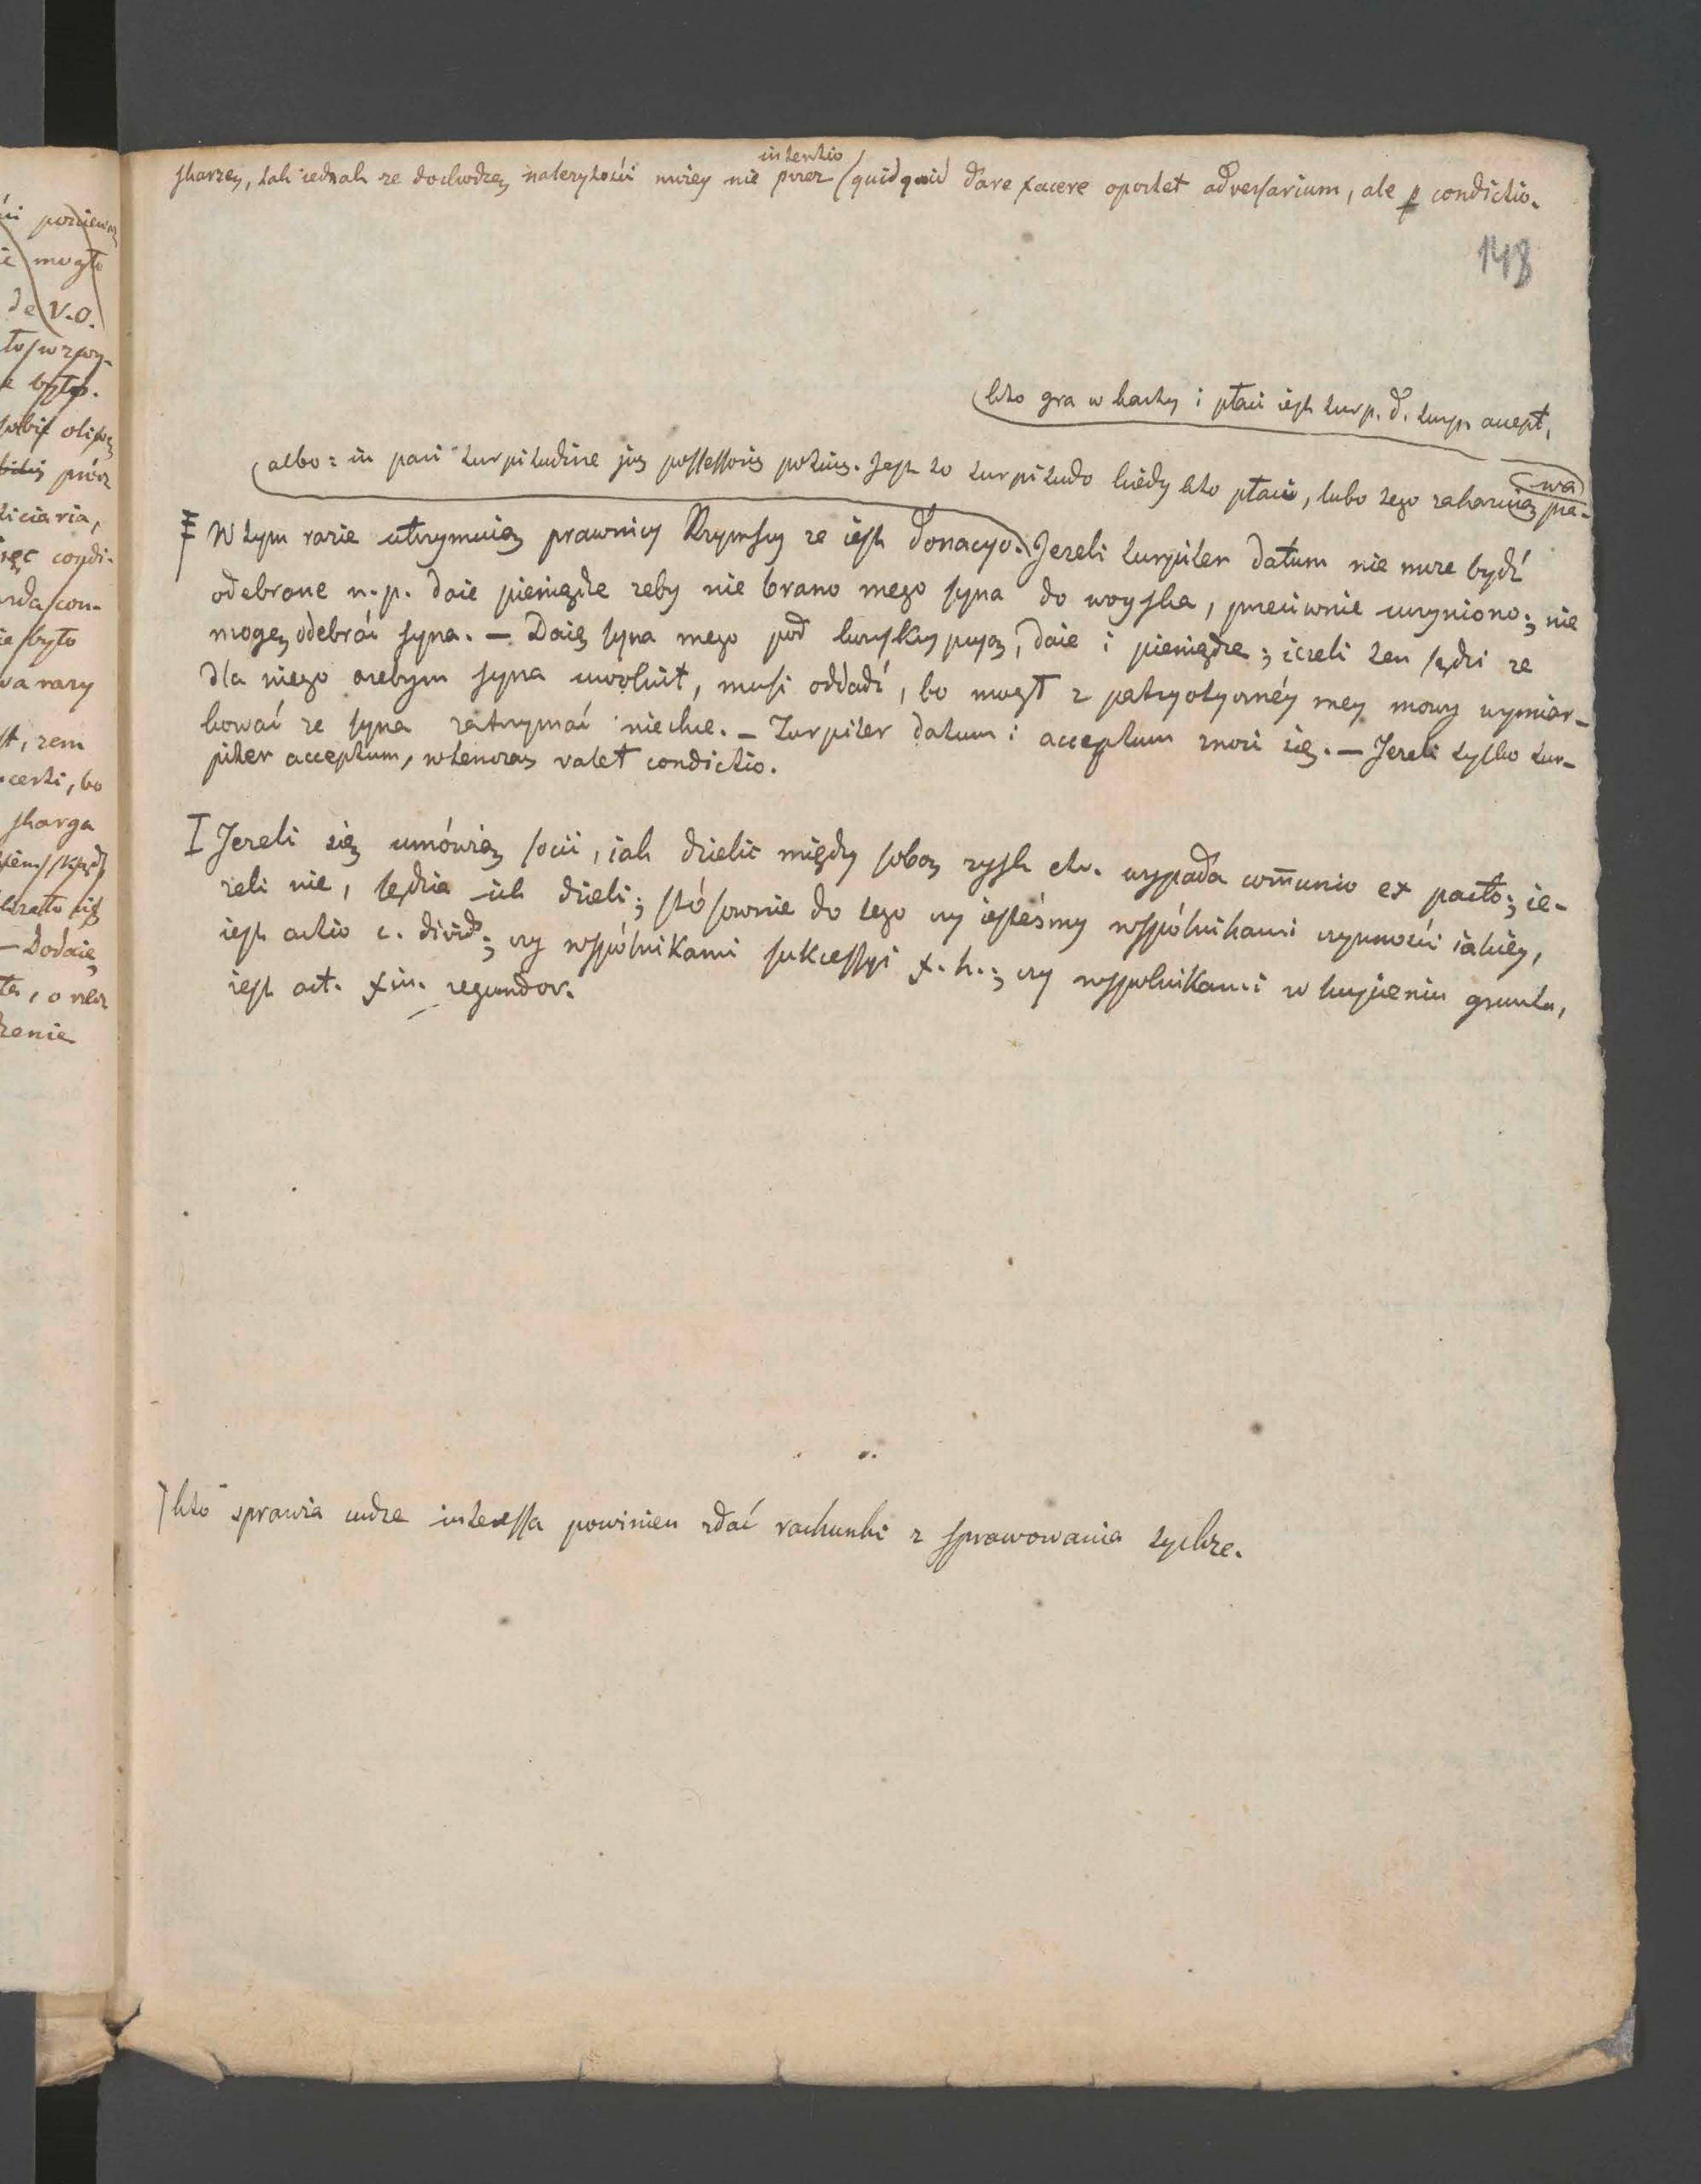 intentio
skarzę, tak iednak ze dochodzę nalezytości moiey nie przez (quidquid dare facere oportet adversarium, ale p condictio.
148
kto gra w karty i płaci iest turp. d. turp. accept,
albo: in pari turpitudine jus possessoris potius. Jest to turpitudo kiedy kto płaci, lubo tego zakazuią pra-
wa)
W tym razie utrzymuią prawnicy Rzymscy ze iest donacyo. Jezeli turpiter datum nie moze bydź
odebrane n.p. daie pieniądze zeby nie brano mego syna do woyska, przeciwnie uczyniono; nie
mogę odebrać syna. – Daię syna mego pod turyskę, daie i pieniądze; iezeli ten sądzi ze
dla niego azebym syna uwolnit, musi oddadź, bo mogł z patryotyczney mey mowy wymiar-
kować ze syna zatrzymać niechce. – Turpiter datum i acceptum znosi się. – Jezeli tylko tur-
piter acceptum, wtenczas valet condictio.
I Jezeli się umówią socii, iak dzielić między sobą zysk etc. wypada com̄unio ex pacto; ie-
zeli nie, sędzia ich dzieli; stósownie do tego czy iesteśmy wspólnikami czynności iakiey,
iest actio c. divid; czy wspólnikami sukcessyi f. h.; czy wspolnikami w kupieniu gruntu,
iest act. fin. regundor.
kto sprawia cudze interessa powinien zdać rachunki z sprawowania tychze.
ci poniewaz
ie mogło
de V.O.
było.
sobie oliwę
prócz
ticiaria,
więc condi-
con-
ie było
va razy
st, zem
certi, bo
skarga
– Dodaię
zenie